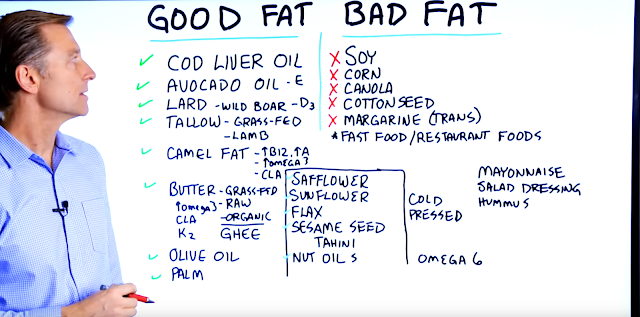 GOOD FAT
BAD FAT
✓ COD LIVER OIL
✓ AVOCADO OIL - E
✓ LARD - WILD BOAR - D3
✓ TALLOW - GRASS-FED
- LAMB
✓ CAMEL FAT - ↑B12, ↑A
- ↑OMEGA 3
- CLA
✓ BUTTER - GRASS-FED
↑omega3 - RAW
CLA - ORGANIC
K2 GHEE
✓ OLIVE OIL
✓ PALM
SAFFLOWER
SUNFLOWER
FLAX
SESAME SEED
TAHINI
NUT OILS
COLD
PRESSED
OMEGA 6
X SOY
X CORN
X CANOLA
X COTTONSEED
X MARGARINE (TRANS)
* FAST FOOD/RESTAURANT FOODS
MAYONNAISE
SALAD DRESSING
HUMMUS